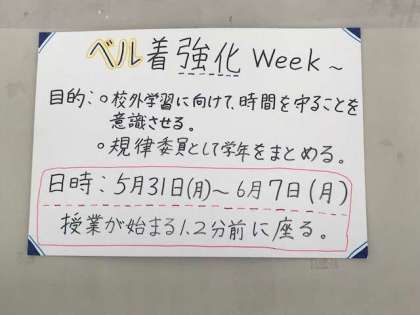 ベル着強化 Week~
目的:○校外学習に向けて、時間を守ることを
意識させる。
○規律委員として学年をまとめる。
日時:5月31日(月)~6月7日(月)
授業が始まる1.2分前に座る。